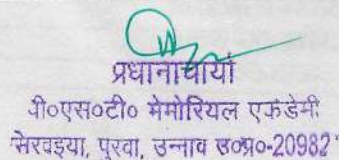 प्रधानाचार्या
पी०एस०टी० मेमोरियल एकेडेमी
सेरवइया, पुरवा, उन्नाव उ०प्र०-20982